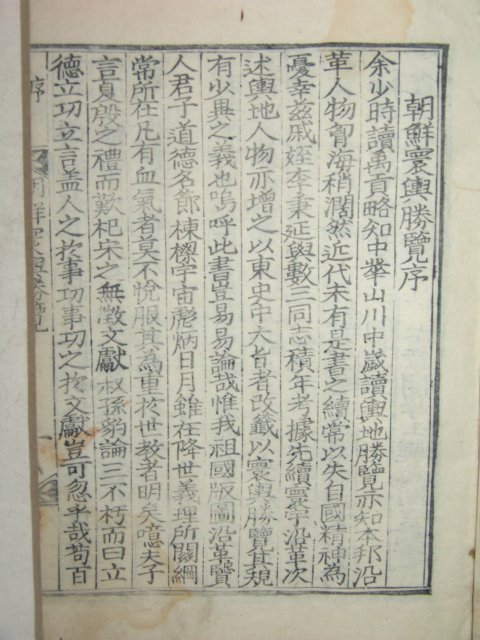 朝鮮寰輿勝覽序
余少時讀禹貢略知中華山川中歲讀輿地勝覽亦知本邦沿
革人物智海稍濶然近代未有是書之續常以失自國精神爲
憂幸玆戚姪李秉延與數三同志積年考據先續寰宇沿革次
述輿地人物亦增之以東史中大旨者改籤以寰輿勝覽其規
有少異之義也嗚呼此書豈易易論哉惟我祖國版圖沿革賢
人君子道德名節棟樑宇宙彪炳日月雖在降世義理所關綱
常所在凡有血氣者莫不悅服其爲重於世敎者明矣噫夫子
言夏殷之禮而歎杞宋之無徵文獻叔孫豹論三不朽而曰立
德立功立言盖人之於事功事功之於文獻豈可忽乎哉苟百
序
朝鮮寰輿勝覽
一